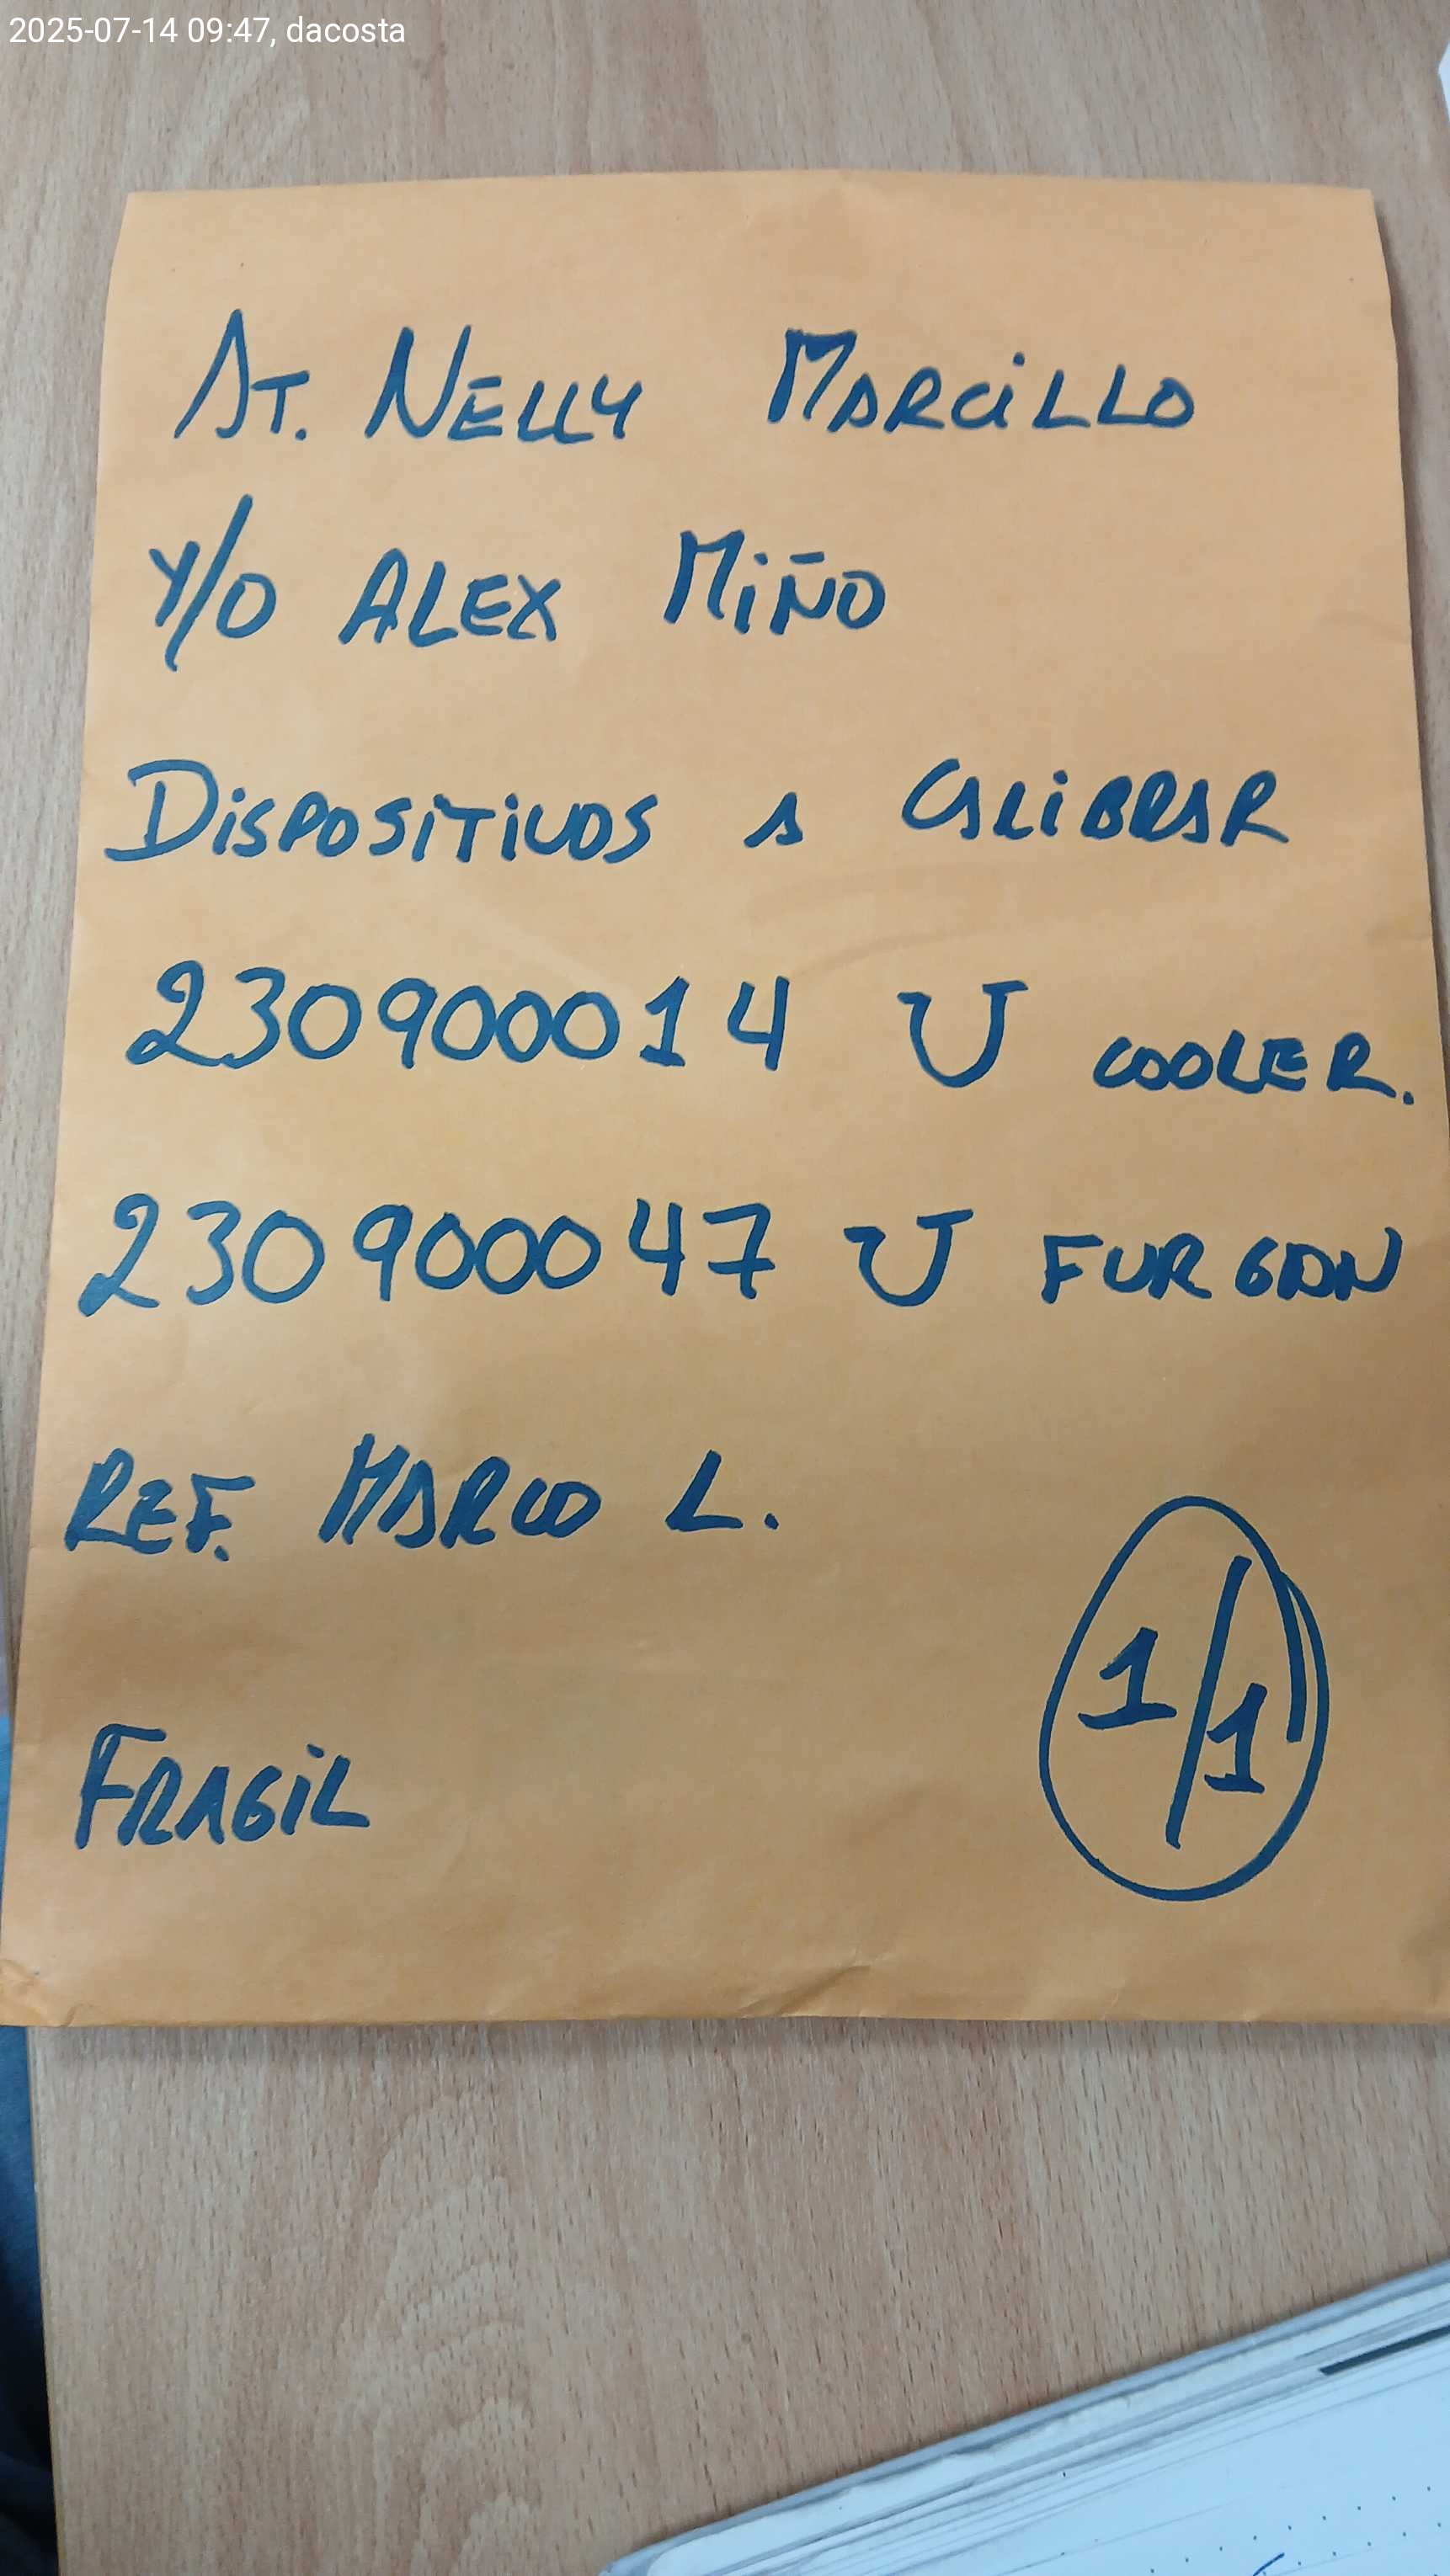 2025-07-14 09:47, dacosta
AT. NELLY MARCiLLO
Y/O ALEX MiÑO
DiSPOSiTiVOS A CALiBRAR
230900014 U COOLER.
230900047 U FURGON
REF. MARCO L.
1/1
FRAGiL